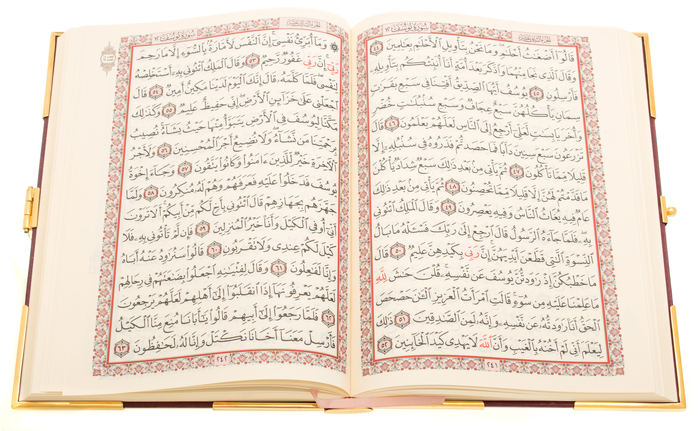 سورة يوسف ١٢
قَالُوٓا۟ أَضْغَٰثُ أَحْلَٰمٍ وَمَا نَحْنُ بِتَأْوِيلِ ٱلْأَحْلَٰمِ بِعَٰلِمِينَ ٤٤
وَقَالَ ٱلَّذِى نَجَا مِنْهُمَا وَٱدَّكَرَ بَعْدَ أُمَّةٍ أَنَا۠ أُنَبِّئُكُم بِتَأْوِيلِهِۦ
فَأَرْسِلُونِ ٤٥ يُوسُفُ أَيُّهَا ٱلصِّدِّيقُ أَفْتِنَا فِى سَبْعِ بَقَرَٰتٍ
سِمَانٍ يَأْكُلُهُنَّ سَبْعٌ عِجَافٌ وَسَبْعِ سُنۢبُلَٰتٍ خُضْرٍ
وَأُخَرَ يَابِسَٰتٍ لَّعَلِّىٓ أَرْجِعُ إِلَى ٱلنَّاسِ لَعَلَّهُمْ يَعْلَمُونَ ٤٦ قَالَ
تَزْرَعُونَ سَبْعَ سِنِينَ دَأَبًا فَمَا حَصَدتُّمْ فَذَرُوهُ فِى سُنۢبُلِهِۦٓ إِلَّا
قَلِيلًا مِّمَّا تَأْكُلُونَ ٤٧ ثُمَّ يَأْتِى مِنۢ بَعْدِ ذَٰلِكَ سَبْعٌ شِدَادٌ يَأْكُلْنَ
مَا قَدَّمْتُمْ لَهُنَّ إِلَّا قَلِيلًا مِّمَّا تُحْصِنُونَ ٤٨ ثُمَّ يَأْتِى مِنۢ بَعْدِ ذَٰلِكَ
عَامٌ فِيهِ يُغَاثُ ٱلنَّاسُ وَفِيهِ يَعْصِرُونَ ٤٩ وَقَالَ ٱلْمَلِكُ ٱئْتُونِى
بِهِۦ فَلَمَّا جَآءَهُ ٱلرَّسُولُ قَالَ ٱرْجِعْ إِلَىٰ رَبِّكَ فَسْـَٔلْهُ مَا بَالُ
ٱلنِّسْوَةِ ٱلَّٰتِى قَطَّعْنَ أَيْدِيَهُنَّ إِنَّ رَبِّى بِكَيْدِهِنَّ عَلِيمٌ ٥٠ قَالَ
مَا خَطْبُكُنَّ إِذْ رَٰوَدتُّنَّ يُوسُفَ عَن نَّفْسِهِۦ قُلْنَ حَٰشَ لِلَّهِ
مَا عَلِمْنَا عَلَيْهِ مِن سُوٓءٍ قَالَتِ ٱمْرَأَتُ ٱلْعَزِيزِ ٱلْـَٰٔنَ حَصْحَصَ
ٱلْحَقُّ أَنَا۠ رَٰوَدتُّهُۥ عَن نَّفْسِهِۦ وَإِنَّهُۥ لَمِنَ ٱلصَّٰدِقِينَ ٥١ ذَٰلِكَ
لِيَعْلَمَ أَنِّى لَمْ أَخُنْهُ بِٱلْغَيْبِ وَأَنَّ ٱللَّهَ لَا يَهْدِى كَيْدَ ٱلْخَآئِنِينَ ٥٢
٢٤١
سورة يوسف ١٢
وَمَآ أُبَرِّئُ نَفْسِىٓ إِنَّ ٱلنَّفْسَ لَأَمَّارَةٌۢ بِٱلسُّوٓءِ إِلَّا مَا رَحِمَ
رَبِّىٓ إِنَّ رَبِّى غَفُورٌ رَّحِيمٌ ٥٣ وَقَالَ ٱلْمَلِكُ ٱئْتُونِى بِهِۦٓ أَسْتَخْلِصْهُ
لِنَفْسِى فَلَمَّا كَلَّمَهُۥ قَالَ إِنَّكَ ٱلْيَوْمَ لَدَيْنَا مَكِينٌ أَمِينٌ ٥٤ قَالَ
ٱجْعَلْنِى عَلَىٰ خَزَآئِنِ ٱلْأَرْضِ إِنِّى حَفِيظٌ عَلِيمٌ ٥٥ وَكَذَٰلِكَ
مَكَّنَّا لِيُوسُفَ فِى ٱلْأَرْضِ يَتَبَوَّأُ مِنْهَا حَيْثُ يَشَآءُ نُصِيبُ
بِرَحْمَتِنَا مَن نَّشَآءُ وَلَا نُضِيعُ أَجْرَ ٱلْمُحْسِنِينَ ٥٦ وَلَأَجْرُ
ٱلْـَٔاخِرَةِ خَيْرٌ لِّلَّذِينَ ءَامَنُوا۟ وَكَانُوا۟ يَتَّقُونَ ٥٧ وَجَآءَ إِخْوَةُ
يُوسُفَ فَدَخَلُوا۟ عَلَيْهِ فَعَرَفَهُمْ وَهُمْ لَهُۥ مُنكِرُونَ ٥٨ وَلَمَّا
جَهَّزَهُم بِجَهَازِهِمْ قَالَ ٱئْتُونِى بِأَخٍ لَّكُم مِّنْ أَبِيكُمْ أَلَا تَرَوْنَ
أَنِّىٓ أُوفِى ٱلْكَيْلَ وَأَنَا۠ خَيْرُ ٱلْمُنزِلِينَ ٥٩ فَإِن لَّمْ تَأْتُونِى بِهِۦ فَلَا
كَيْلَ لَكُمْ عِندِى وَلَا تَقْرَبُونِ ٦٠ قَالُوا۟ سَنُرَٰوِدُ عَنْهُ أَبَاهُ
وَإِنَّا لَفَٰعِلُونَ ٦١ وَقَالَ لِفِتْيَٰنِهِ ٱجْعَلُوا۟ بِضَٰعَتَهُمْ فِى رِحَالِهِمْ
لَعَلَّهُمْ يَعْرِفُونَهَآ إِذَا ٱنقَلَبُوٓا۟ إِلَىٰٓ أَهْلِهِمْ لَعَلَّهُمْ يَرْجِعُونَ
٦٢ فَلَمَّا رَجَعُوٓا۟ إِلَىٰٓ أَبِيهِمْ قَالُوا۟ يَٰٓأَبَانَا مُنِعَ مِنَّا ٱلْكَيْلُ
فَأَرْسِلْ مَعَنَآ أَخَانَا نَكْتَلْ وَإِنَّا لَهُۥ لَحَٰفِظُونَ ٦٣
٢٤٢